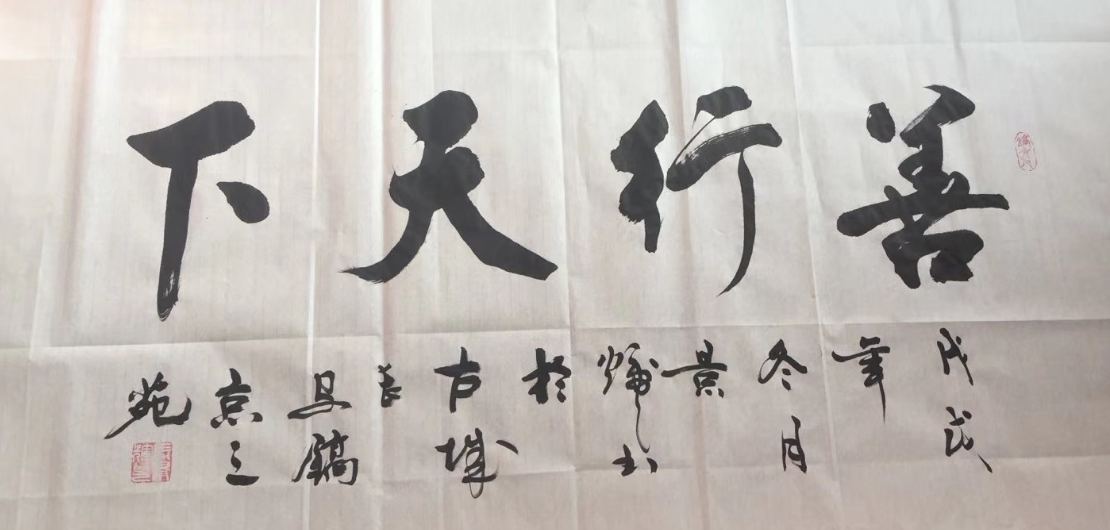 善行天下
戊戌
年
冬月
景
辉书
於
古城
长
安镐
京之
苑